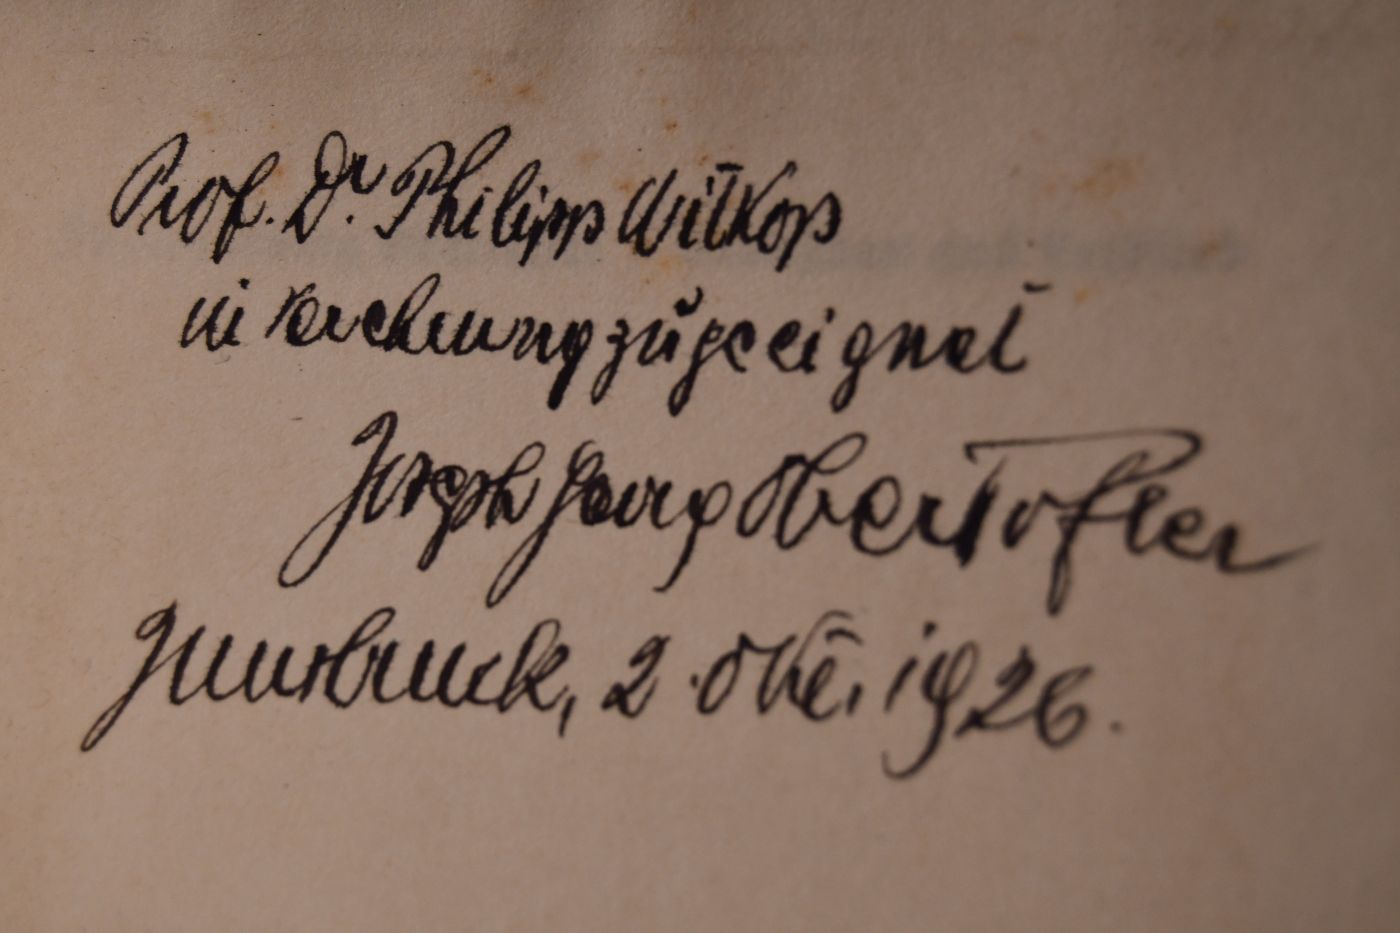 Prof. Dr. Philipp Witkop
in Verehrung zugeeignet
Joseph Georg Oberkofler
Innsbruck, 2. Okt. 1926.